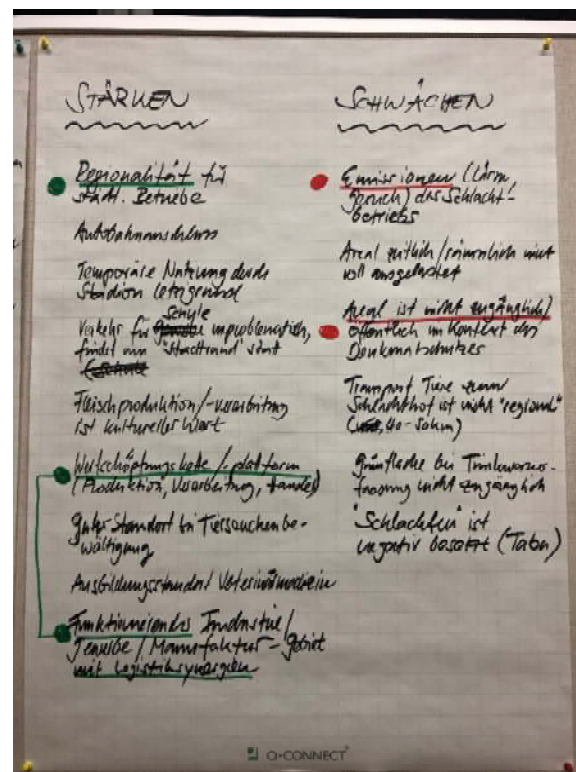 STÄRKEN
Regionalität für
städt. Betriebe
Autobahnanschluss
Temporäre Nutzung durch
Stadion Letzigrund
Schule
Verkehr für unproblematisch,
findet am "Stadtrand" statt
Fleischproduktion/-verarbeitung
ist kultureller Wert
Wertschöpfungskette/platform
(Produktion, Verarbeitung, Handel)
Guter Standort bei Tierseuchenbe-
wältigung
Ausbildungsstandort Veterinärmedizin
Funktionierendes Industrie/
Gewerbe/Manufaktur-gebiet
mit Logistiksynergien
SCHWÄCHEN
Emissionen (Lärm,
Geruch) des Schlacht-
betriebs
Areal zeitlich/räumlich nicht
voll ausgelastet
Areal ist nicht zugänglich/
öffentlich im Kontext des
Denkmalschutzes
Transport Tiere zum
Schlachthof ist nicht "regional"
Grünfläche bei Trinkwasser-
fassung nicht zugänglich
"Schlachten" ist
negativ besetzt (Tabu)
Q-CONNECT